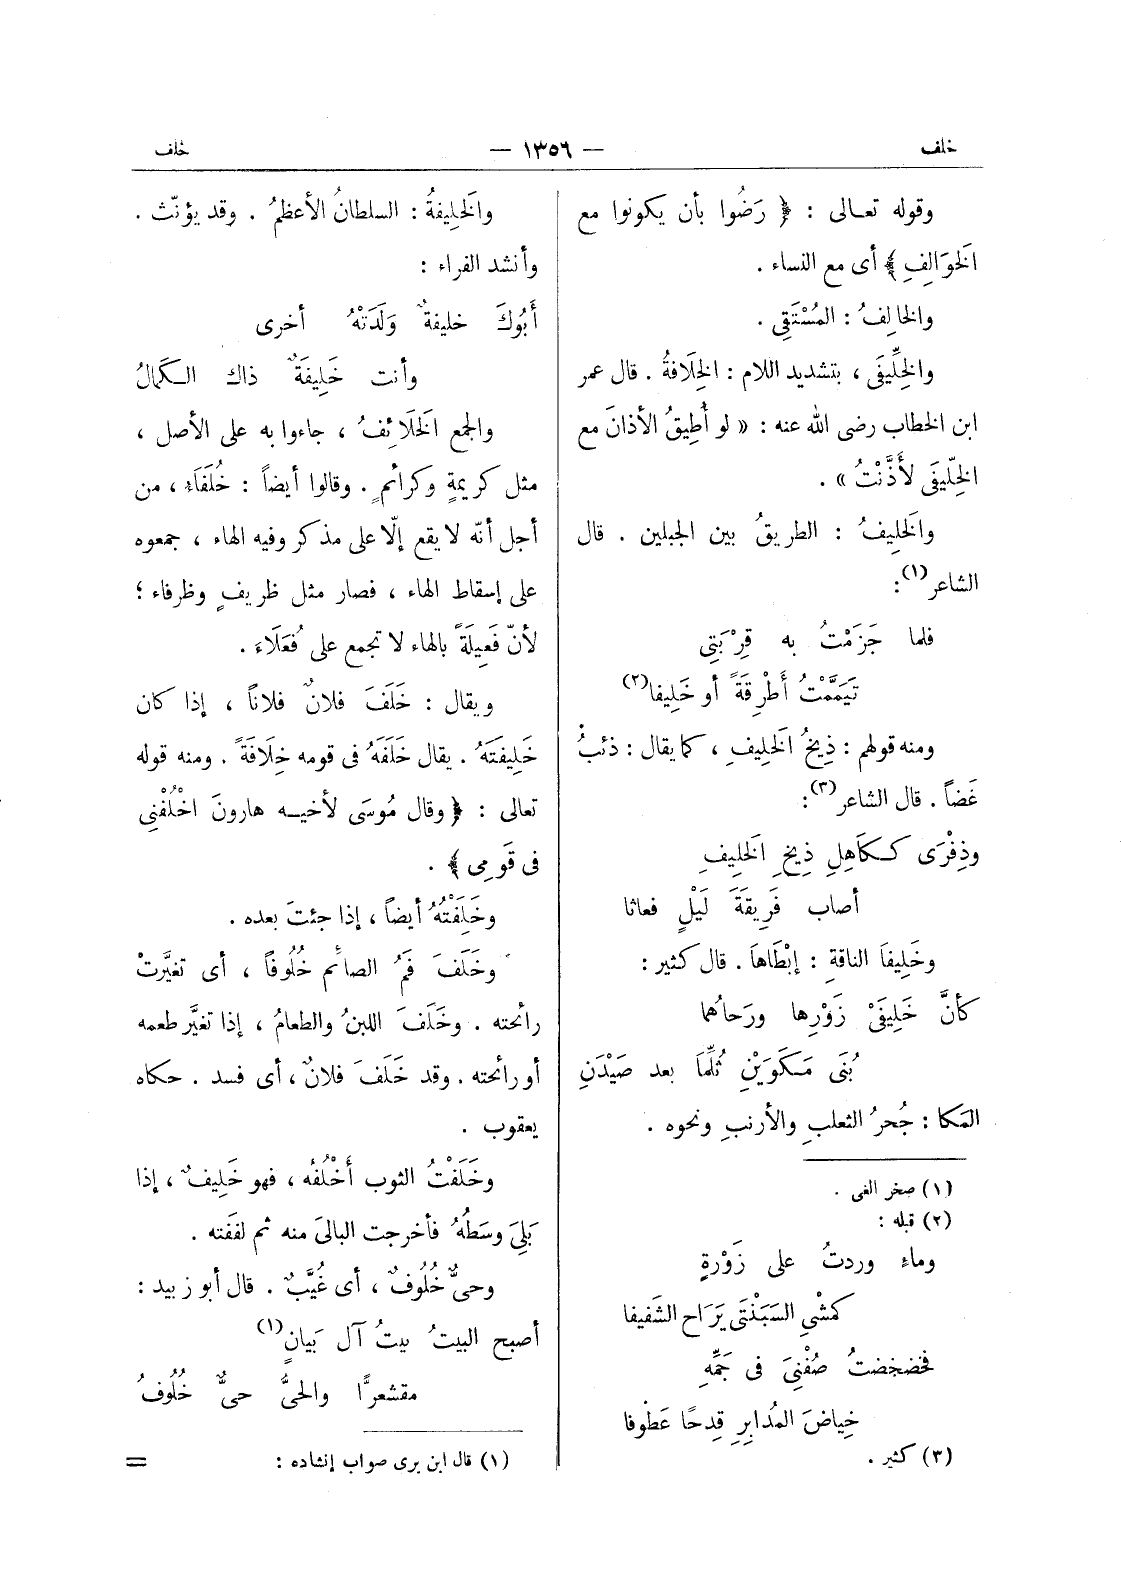 خلف
— ١٣٥٦ —
خلف
وقوله تعـالى : ﴿ رَضُوا بأن يكونوا مع
الَخوَالِفِ ﴾ أى مع النساء .
والخالِفُ : المُسْتَقِى .
والخِلِّيفَى ، بتشديد اللام : الخِلَافةُ . قال عمر
ابن الخطاب رضى الله عنه : « لو أُطيقُ الأذانَ مع
الخِلّيفَى لأَذَّنْتُ » .
والَخلِيفُ : الطريقُ بين الجبلين . قال
الشاعر(١) :
فلما جَزَمْتُ به قِرْبَتِى
تَيَمَّمْتُ أَطْرِقَةً أو خَلِيفا(٢)
ومنه قولهم : ذِيخُ الَخلِيفِ ، كما يقال : ذئبُ
غَضاً . قال الشاعر(٣) :
وذِفْرَى كـكَاهِلِ ذِيخِ الَخلِيفِ
أصاب فَرِيقَةَ لَيْلٍ فعاثا
وخَلِيفَا الناقةِ : إبْطَاهَا . قال كثير :
كأنَّ خَلِيفَىْ زَوْرِها ورَحاهُما
بُنَى مَـكَوَيْنِ ثُلِّمَا بعد صَيْدَنِ
المَكا : جُحرُ الثعلبِ والأرنبِ ونحوه .
(١) صخر الغى .
(٢) قبله :
وماءٍ وردتُ على زَوْرةٍ
كمشْىِ السَبَنْتَى يَرَاح الشَفيفا
فخضخضتُ صُفْنِىَ فى جَمِّهِ
خِياضَ المُدابِرِ قِدحًا عَطُوفا
(٣) كثير .
والَخلِيفةُ : السلطانُ الأعظمُ . وقد يؤنّث .
وأنشد الفراء :
أَبُوكَ خليفةٌ وَلَدَتْهُ أخرى
وأنت خَلِيفَةٌ ذاك الـكَمالُ
والجمع الَخلَائِفُ ، جاءوا به على الأصل ،
مثل كريمةٍ وكرائمٍ . وقالوا أيضاً : خُلَفَاءُ ، من
أجل أنّه لا يقع إلّا على مذكر وفيه الهاء ، جمعوه
على إسقاط الهاء ، فصار مثل ظريفٍ وظرفاء ؛
لأنّ فَعِيلَةً بالهاء لا تجمع على فُعَلَاءَ .
ويقال : خَلَفَ فلانٌ فلاناً ، إذا كان
خَلِيفتَهُ . يقال خَلَفَهُ فى قومه خِلَافَةً . ومنه قوله
تعالى : ﴿ وقال مُوسَى لأخيـه هارونَ اخْلُفْنِى
فى قَومِى ﴾ .
وخَلَفْتُهُ أيضاً ، إذا جئتَ بعده .
وخَلَفَ فَمُ الصائمِ خُلُوفاً ، أى تغيَّرتْ
رائحته . وخَلَفَ اللبنُ والطعامُ ، إذا تغيَّر طعمه
أو رائحته . وقد خَلَفَ فلانٌ ، أى فسد . حكاه
يعقوب .
وخَلَفْتُ الثوب أَخْلُفُه ، فهو خَلِيفٌ ، إذا
بَلِىَ وسَطُهُ فأخرجت البالىَ منه ثم لفَقته .
وحىٌّ خُلُوفٌ ، أى غُيَّبٌ . قال أبو زبيد :
أصبح البيتُ بيتُ آل بَيانٍ(١)
مقشعرًّا والحىُّ حىٌّ خُلُوفُ
(١) قال ابن برى صواب إنشاده :
=